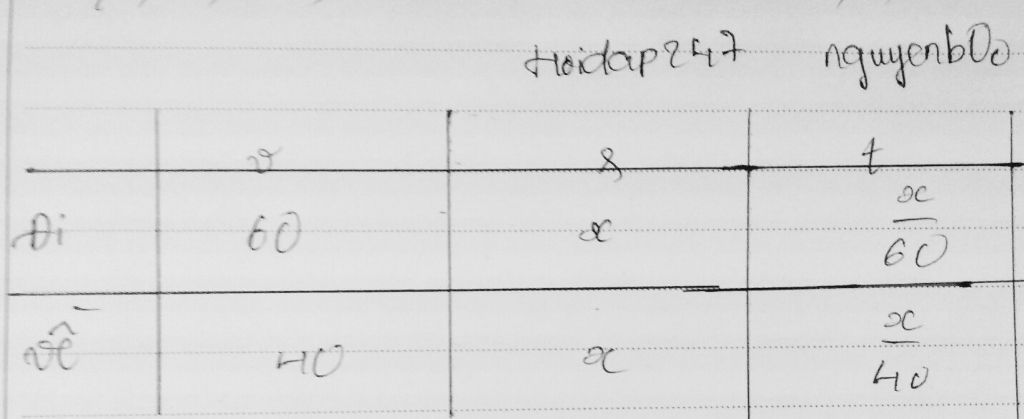 Hoidap247 nguyenb00
v s t
Đi 60 x x/60
Về 40 x x/40